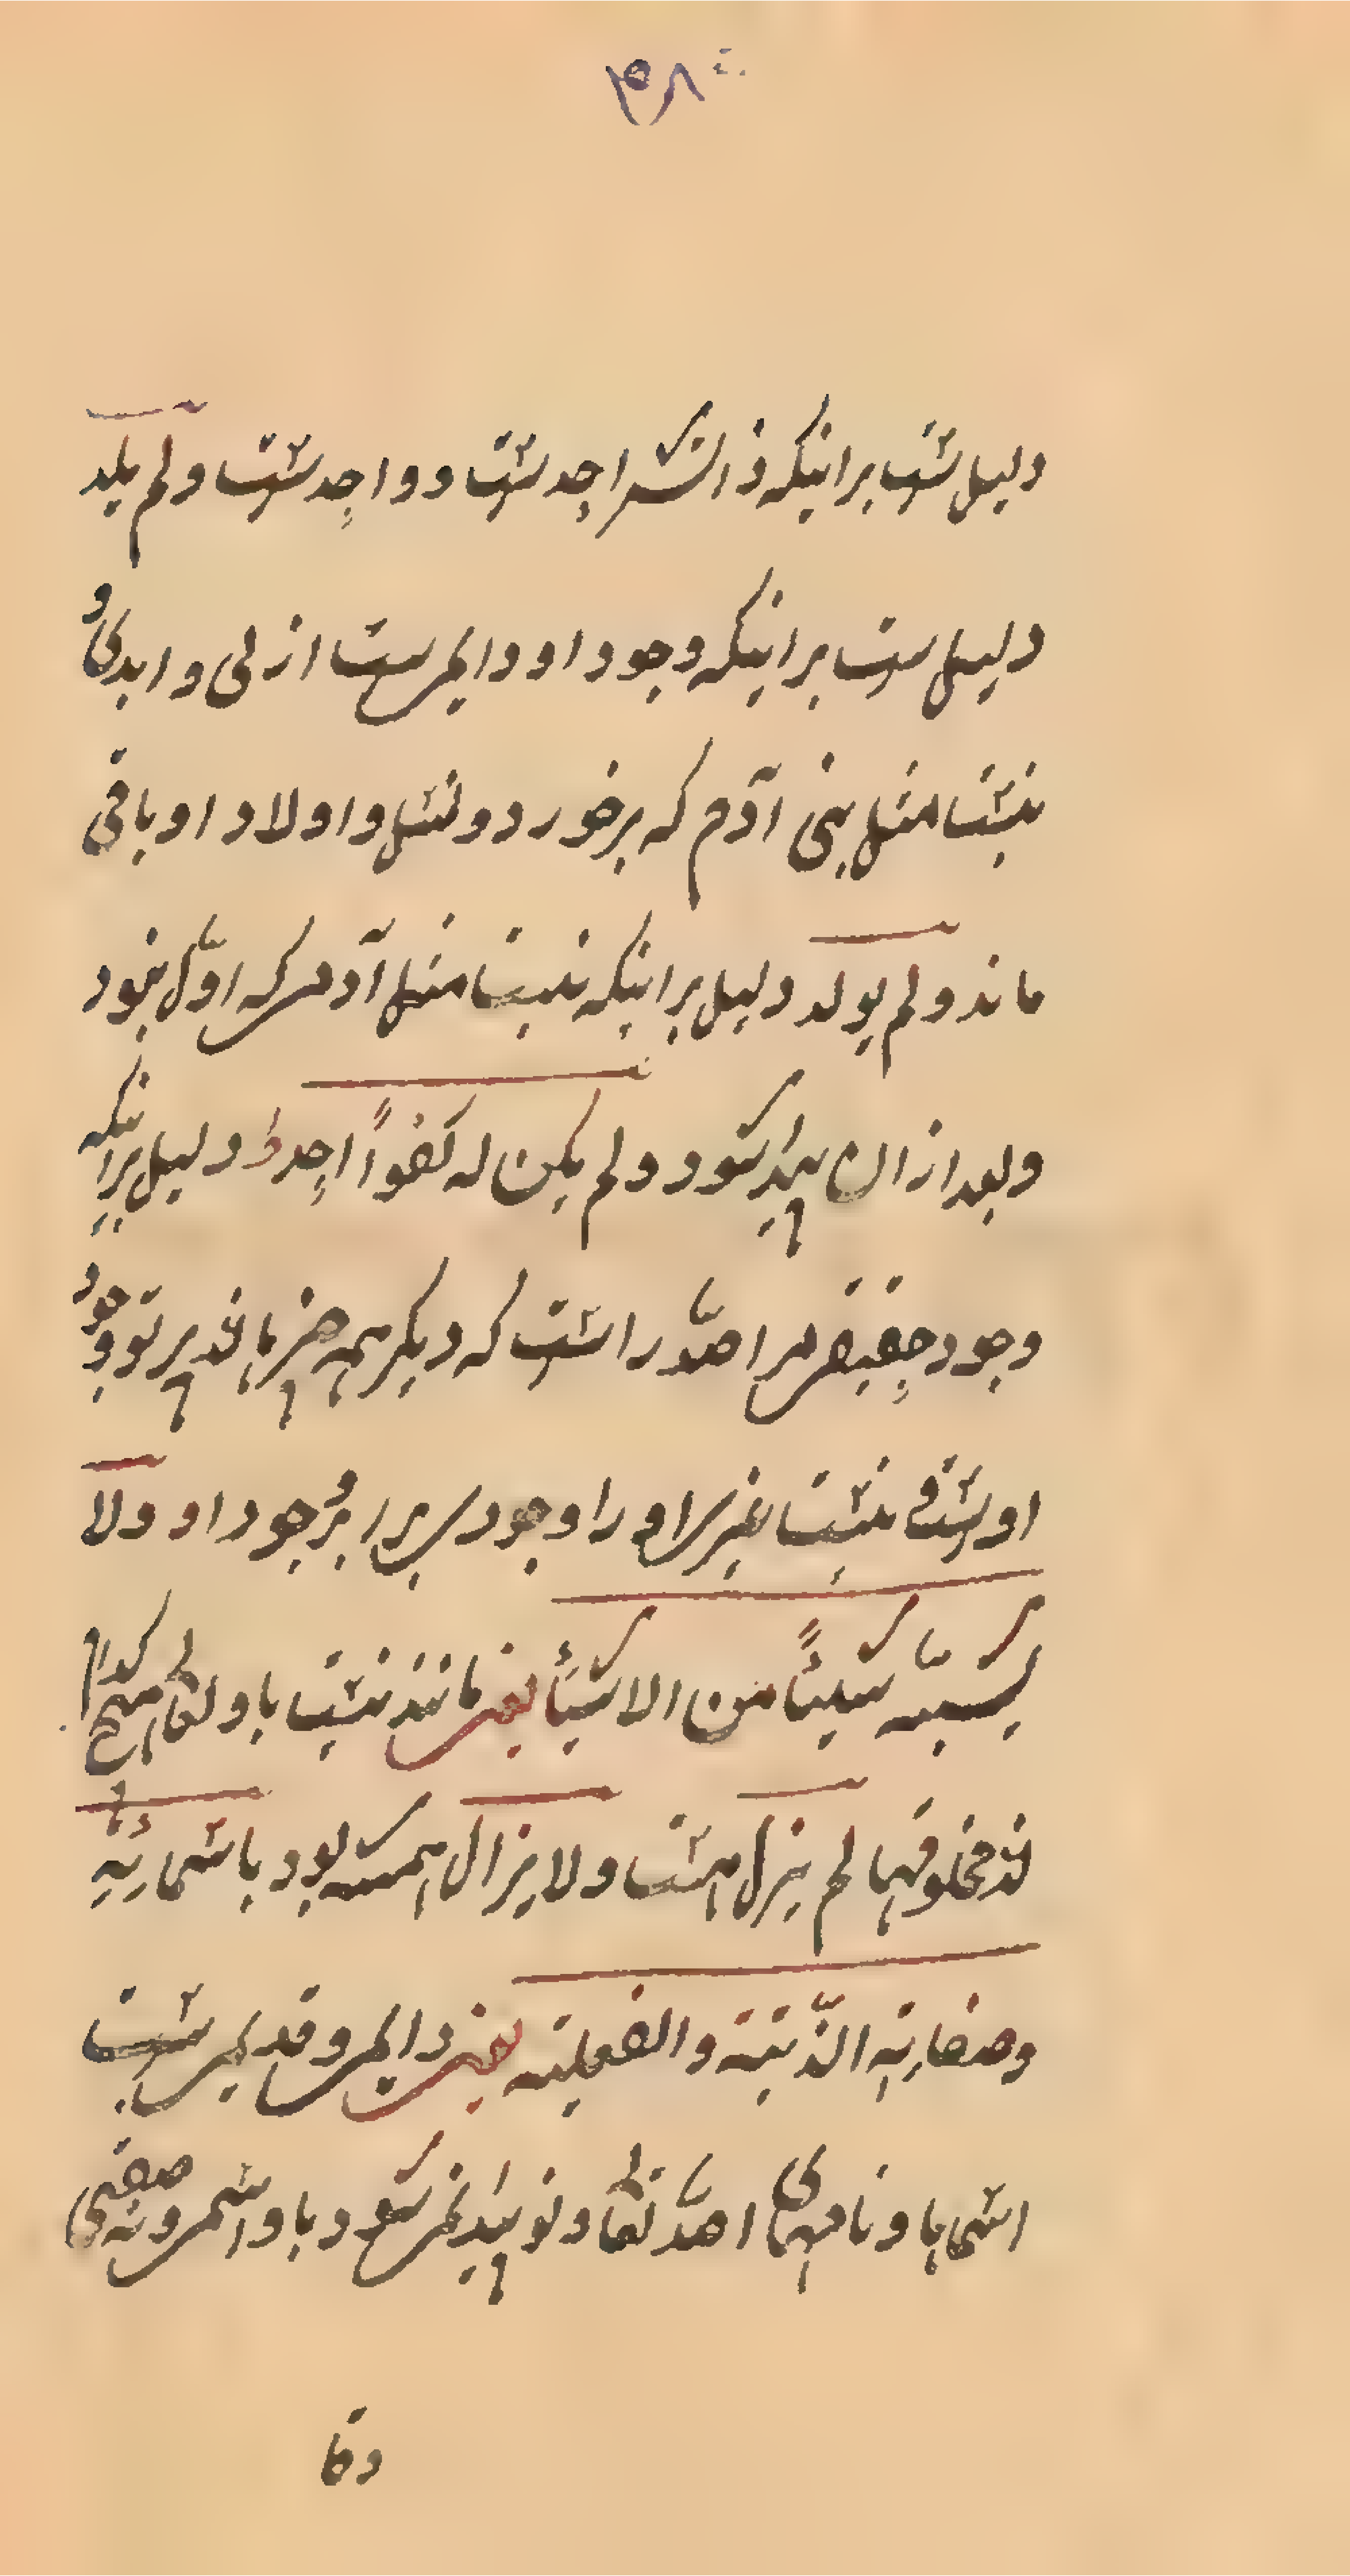 ۳۸
دلیل ست برانیکه ذاتش احد ست و واحد ست و لم یلد
دلیل ست برانیکه وجود او دایم ست ازلی و ابدی و
نیست مثل بنی آدم که برخورد و نسل و اولاد او باقی
ماند و لم یولد دلیل برانیکه نیست مثل آدم که اوّل نبود
و بعد ازان پیدا شود و لم یکن له کفواً احد دلیل برانیکه
وجود حقیقی مر احدّ را ست که دیکر همه چیزها پرتو وجود
اوست نیست غیر او را وجود برابر وجود او و لا
یشبه شیئاً من الاشیأ یعنی مانند نیست باو تعالی هیچ کدام
از مخلوقها لم یزل همیشه ست و لا یزال همیشه بود باسمائه
و صفاته الذّتیة و الفعلیة یعنی دایم و قدیم ست
اسمهاو نامهای احدّ تعالی و نو پیدا نمی شود باو اسمی و نه صفتی
و قا